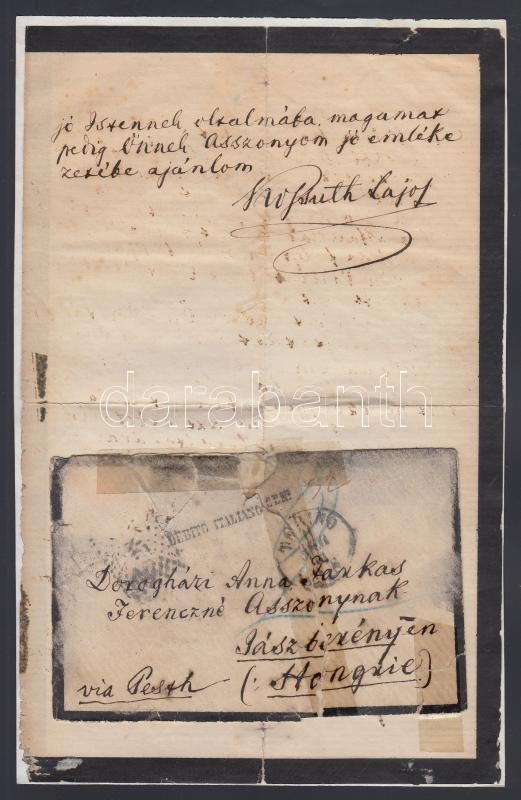 jó Istennek oltalmába, magamat
pedig Önnek Asszonyom jó emléke
zetébe ajánlom
Kossuth Lajos
darabanth
DEBITO ITALIANO CENT
TORINO
Dorogházi Anna Farkas
Ferenczné Asszonynak
Jászberényen
via Pesth (: Hongrie)